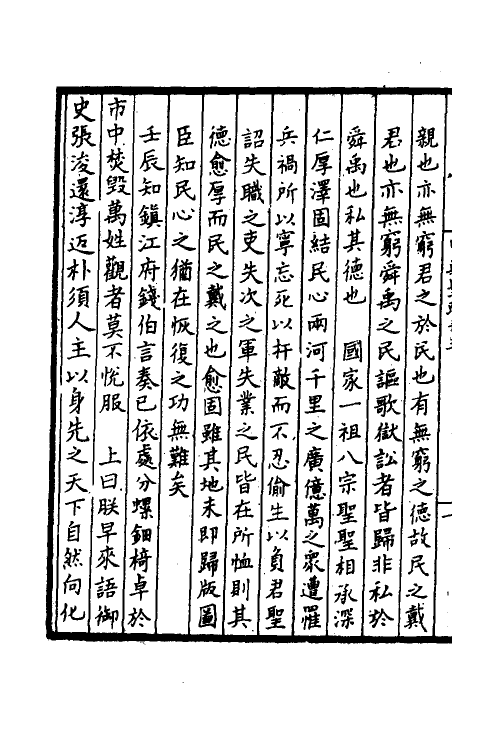 親也亦無窮君之於民也有無窮之德故民之戴
君也亦無窮舜禹之民謳歌獄訟者皆歸非私於
舜禹也私其德也　國家一祖八宗聖聖相承深
仁厚澤固結民心兩河千里之廣億萬之衆遭罹
兵禍所以寧忘死以扞敵而不忍偷生以負君聖
詔失職之吏失次之軍失業之民皆在所恤則其
德愈厚而民之戴之也愈固雖其地未即歸版圖
臣知民心之猶在恢復之功無難矣
壬辰知鎮江府錢伯言奏已依處分螺鈿椅卓於
市中焚毀萬姓觀者莫不悅服　上曰朕早來語御
史張浚還淳返朴須人主以身先之天下自然向化